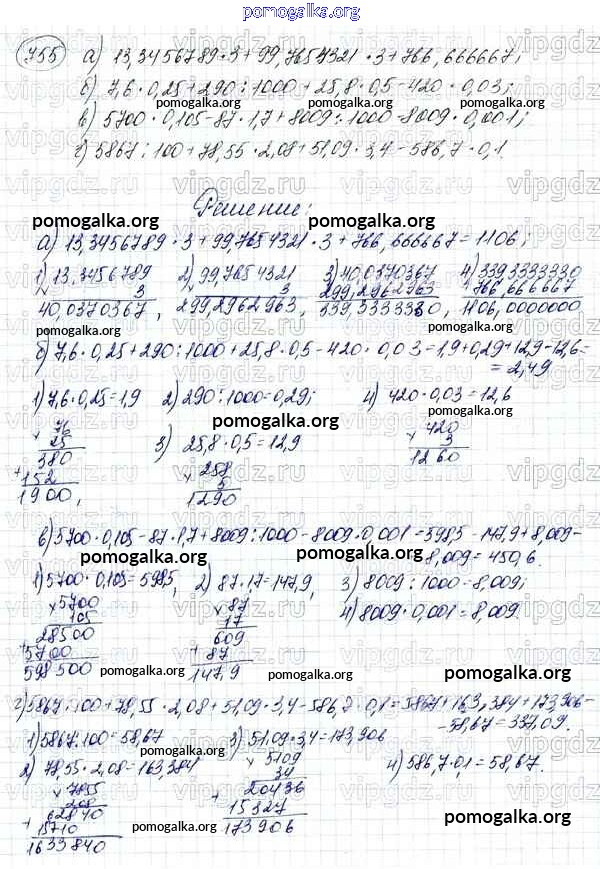 pomogalka.org
755 а) 13,3456789 · 3 + 99,7654321 · 3 + 766,666667;
б) 7,6 · 0,25 + 290 : 1000 + 25,8 · 0,5 - 420 · 0,03;
в) 5700 · 0,105 - 87 · 1,7 + 8009 : 1000 - 8009 · 0,001;
pomogalka.org pomogalka.org
г) 5867 : 100 + 78,55 · 2,08 + 51,09 · 3,4 - 586,7 · 0,1.
Решение:
pomogalka.org pomogalka.org
а) 13,3456789 · 3 + 99,7654321 · 3 + 766,666667 = 1106;
1) 13,3456789 2) 99,7654321 3) 40,0370367 4) 339,3333330
× 3 × 3 299,2962963 + 766,666667
40,0370367, 299,2962963, 339,3333330, 1106,0000000
б) 7,6 · 0,25 + 290 : 1000 + 25,8 · 0,5 - 420 · 0,03 = 1,9 + 0,29 + 12,9 - 12,6 =
= 2,49
1) 7,6 · 0,25 = 1,9 2) 290 : 1000 = 0,29; 4) 420 · 0,03 = 12,6
pomogalka.org pomogalka.org
× 76 × 420
25 3) 25,8 · 0,5 = 12,9 3
380 × 258 1260
+ 152 5
1900, 1290
в) 5700 · 0,105 - 87 · 1,7 + 8009 : 1000 - 8009 · 0,001 = 598,5 - 147,9 + 8,009 -
pomogalka.org pomogalka.org
- 8,009 = 450,6.
1) 5700 · 0,105 = 598,5, 2) 87 · 1,7 = 147,9, 3) 8009 : 1000 = 8,009;
× 5700 × 87 4) 8009 · 0,001 = 8,009.
105 17
28500 609
+ 5700 + 87
598500 147,9
pomogalka.org pomogalka.org
г) 5867 : 100 + 78,55 · 2,08 + 51,09 · 3,4 - 586,7 · 0,1 = 58,67 + 163,384 + 173,906 -
- 58,67 = 337,09.
1) 5867 : 100 = 58,67 3) 51,09 · 3,4 = 173,906
pomogalka.org
2) 78,55 · 2,08 = 163,384 × 5109 4) 586,7 · 0,1 = 58,67.
× 7855 34
208 20436
62840 + 15327
+ 15710 173906
1633840
pomogalka.org pomogalka.org